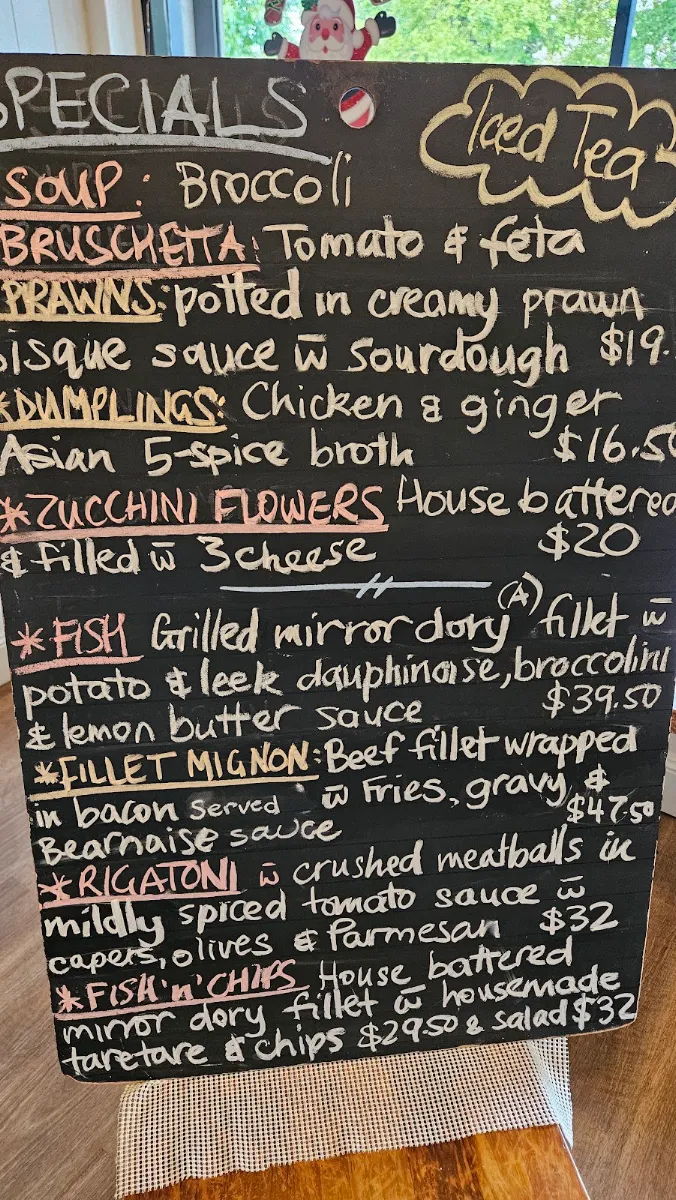 SPECIALS
Iced Tea
SOUP: Broccoli
BRUSCHETTA: Tomato & feta
PRAWNS: potted in creamy prawn
bisque sauce w̄ sourdough $19.
*DUMPLINGS: Chicken & ginger
Asian 5-spice broth $16.50
*ZUCCHINI FLOWERS House battered
& filled w̄ 3 cheese $20
*FISH Grilled mirror dory (A) fillet w̄
potato & leek dauphinoise, broccolini
& lemon butter sauce $39.50
*FILLET MIGNON: Beef fillet wrapped
in bacon served w̄ Fries, gravy &
Bearnaise sauce $47.50
*RIGATONI w̄ crushed meatballs in
mildly spiced tomato sauce w̄
capers, olives & Parmesan $32
*FISH 'n' CHIPS House battered
mirror dory fillet w̄ housemade
taretare & chips $29.50 & salad $32